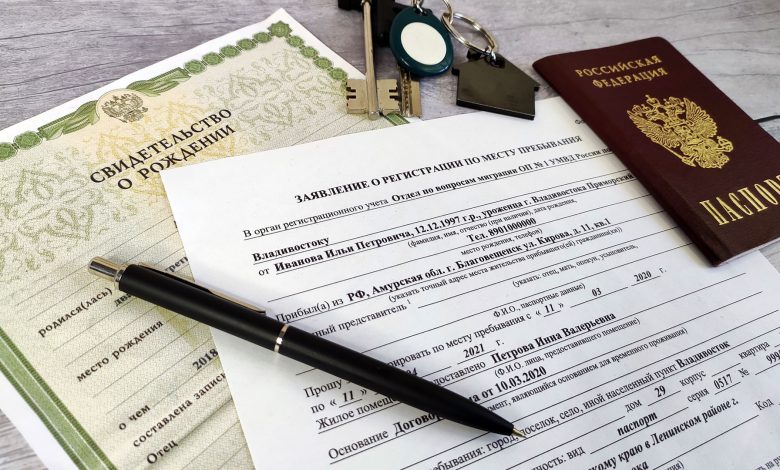 СВИДЕТЕЛЬСТВО
О РОЖДЕНИИ
родился(лась)
место рождения
2018
о чем
составлена запись
Отец
ЗАЯВЛЕНИЕ О РЕГИСТРАЦИИ ПО МЕСТУ ПРЕБЫВАНИЯ
В орган регистрационного учета Отдел по вопросам миграции ОП № 1 УМВД России по
Владивостоку
от Иванова Ильи Петровича, 12.12.1997 г.р., уроженца г. Владивостока Приморский
(фамилия, имя, отчество (при наличии), дата рождения,
Тел. 8901000000
место рождения, телефон)
Прибыл(а) из РФ, Амурская обл. г. Благовещенск ул. Кирова, д. 11. кв.1
(указать точный адрес места жительства прибывшего(ей) гражданина(ки))
представитель
(указать: отец, мать, опекун, усыновитель,
Ф.И.О., паспортные данные)
Прошу
по месту пребывания с « 11 » 03 2020 г.
по « 11 » 04 2021 г.
Жилое
Петрова Инна Валерьевна
(Ф.И.О. лица, предоставившего помещение)
Основание Договор
от 10.03.2020
являющийся основанием для временного проживания)
город, поселок, село, иной населенный пункт Владивосток
дом 29 корпус квартира
вид паспорт серия 0517 № 999
краю в Ленинском районе г.
РОССИЙСКАЯ
ФЕДЕРАЦИЯ
ПАСПОРТ